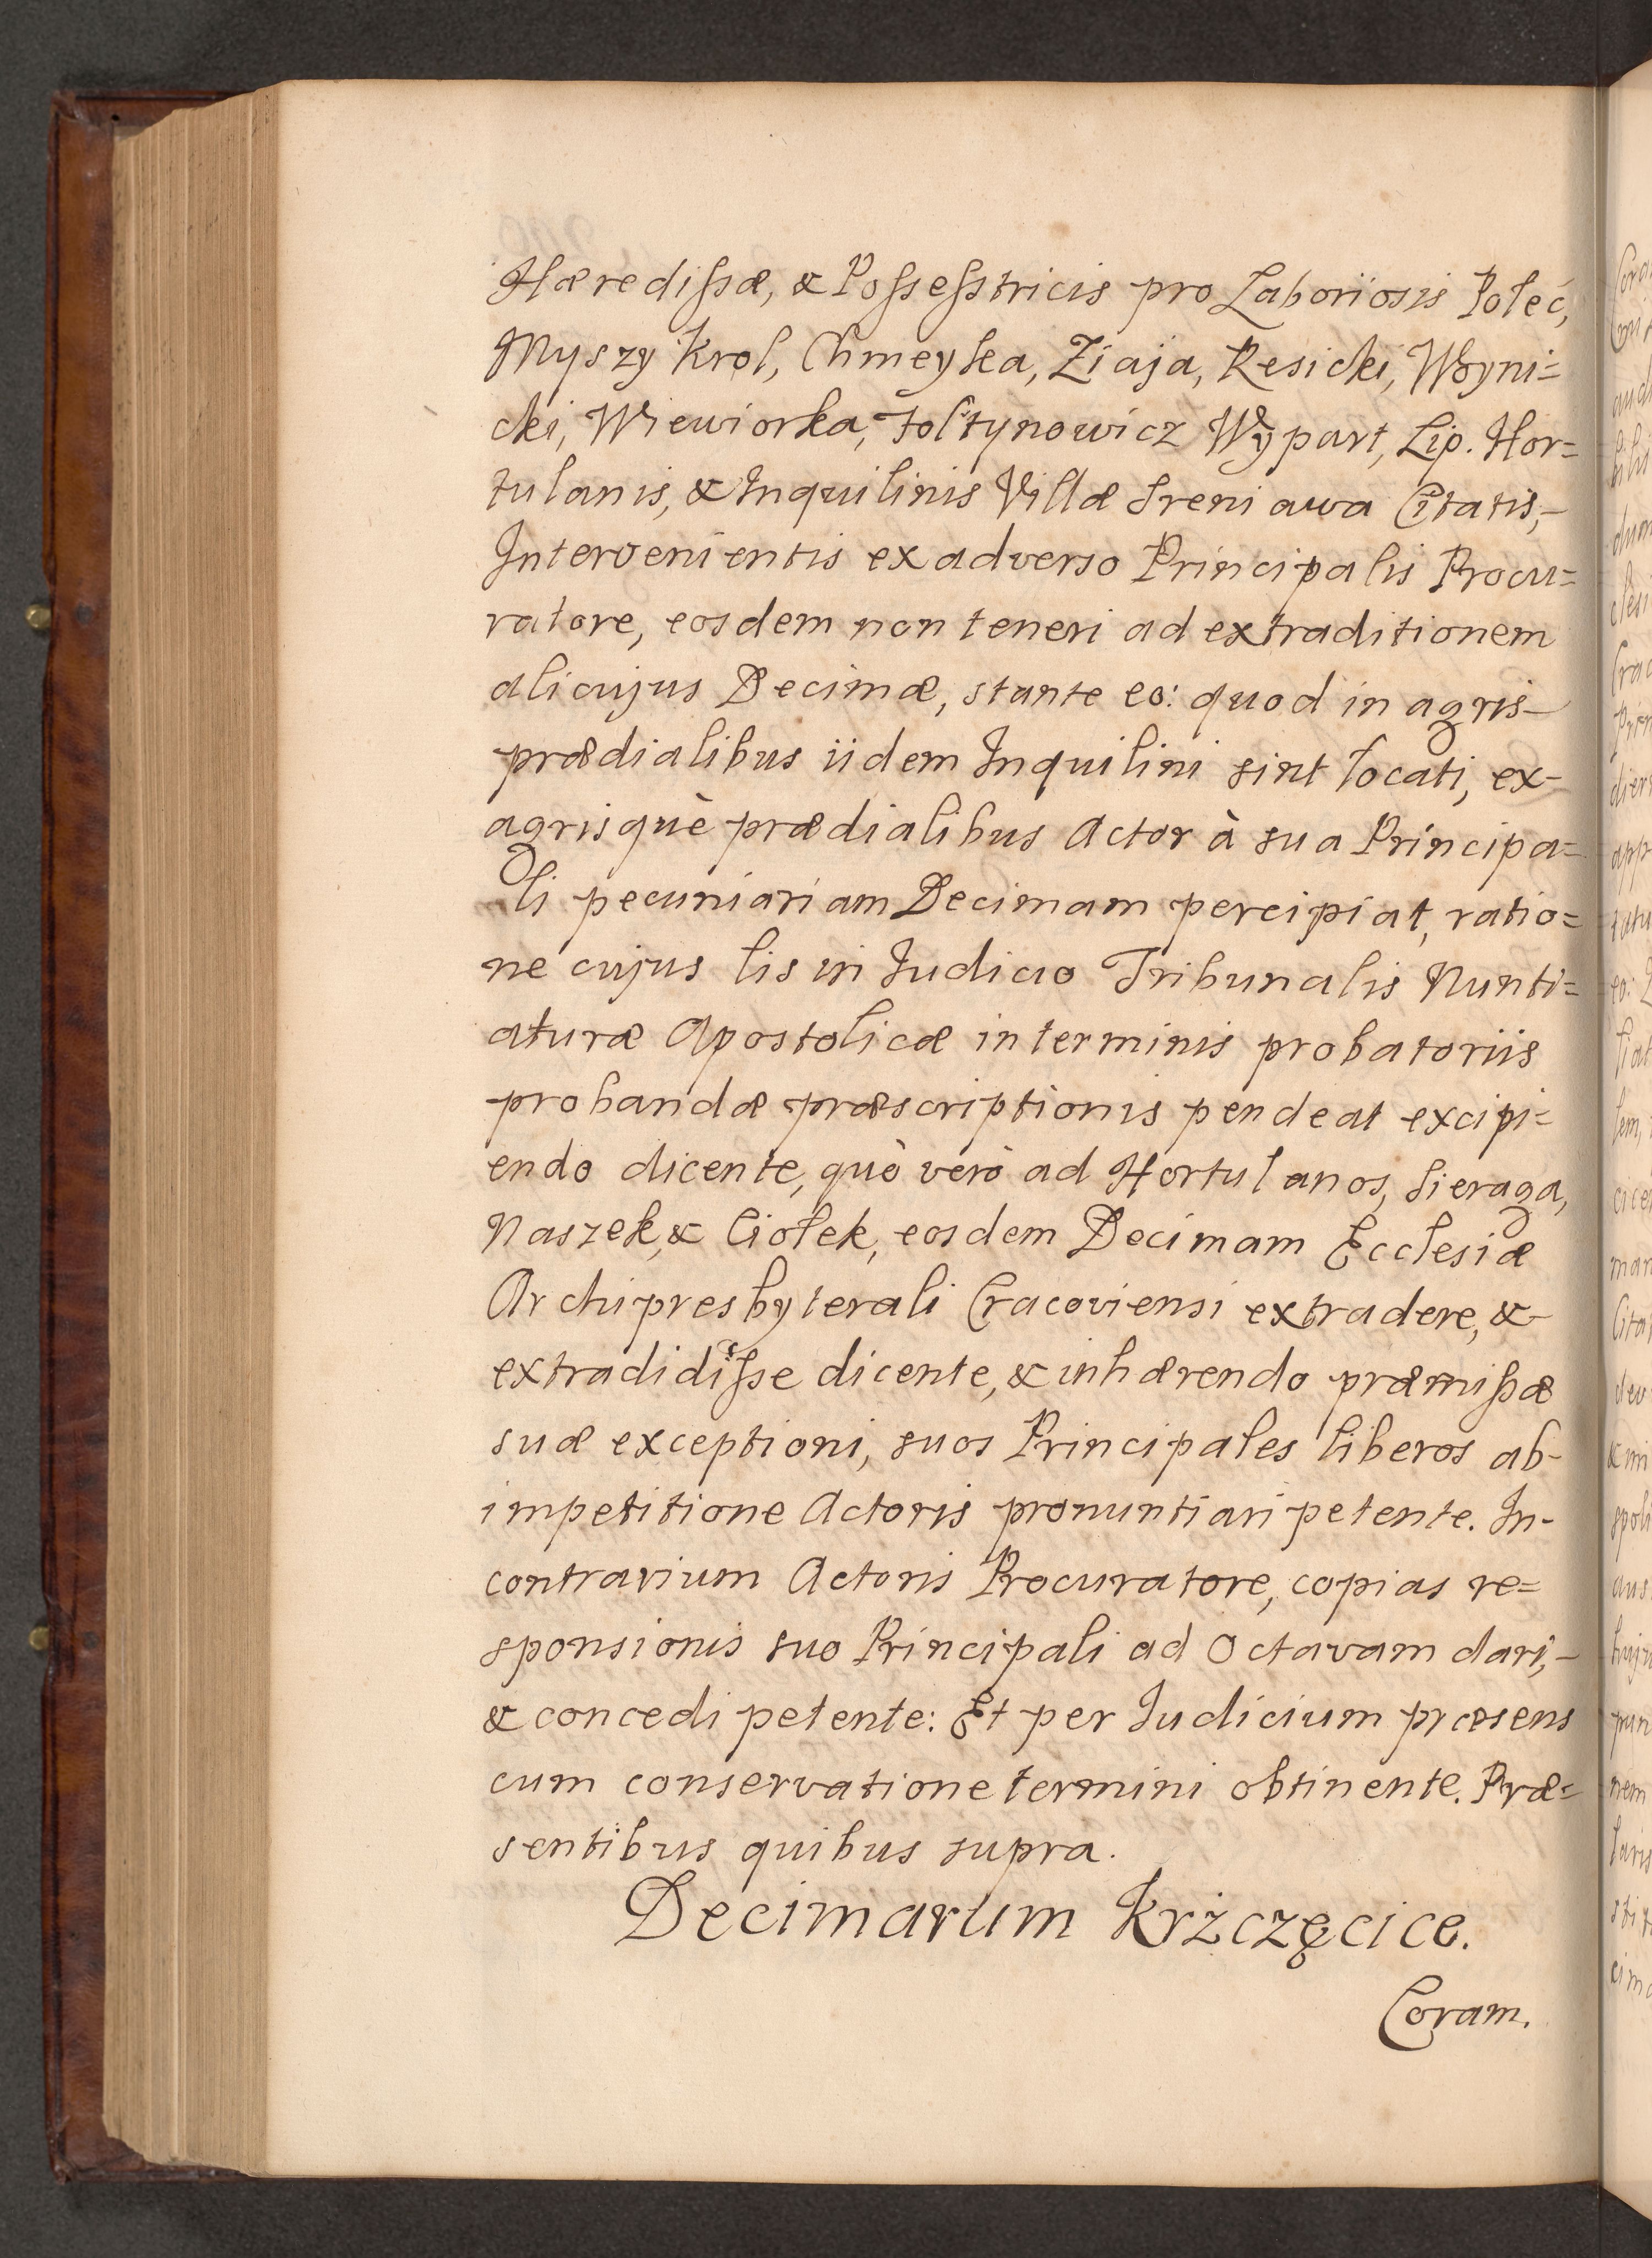 Hæredissæ, & Possesstricis pro Laboriosis Połeć,
Myszy Krol, Chmeyka, Ziaja, Resicki, Woyni=
cki, Wiewiorka, Foltynowicz Wypart, Lip. Hor=
tulanis, & Inquilinis Villæ Sreniawa Citatis,-
Intervenientis ex adverso Principalis Procu=
ratore, eosdem non teneri ad extraditionem
alicujus Decimæ, stante eo: quod in agris-
prædialibus iidem Inquilini sint locati, ex-
agrisquè prædialibus Actor à sua Principa=
li pecuniariam Decimam percipiat, ratio=
ne cujus lis in Judicio Tribunalis Nunti=
aturæ Apostolicæ in terminis probatoriis
probandæ præscriptionis pendeat excipi=
endo dicente, quò verò ad Hortulanos, Sieraga,
Naszek, & Ciołek, eosdem Decimam Ecclesiæ
Archipresbyterali Cracoviensi extradere, &-
extradidisse dicente, & inhærendo præmissæ
suæ exceptioni, suos Principales liberos ab-
impetitione Actoris pronuntiari petente. In-
contrarium Actoris Procuratore, copias re=
sponsionis suo Principali ad Octavam dari,-
& concedi petente: Et per Judicium præsens
cum conservatione termini obtinente. Præ=
sentibus quibus supra.
Decimarum Krżczęcice.
Coram.